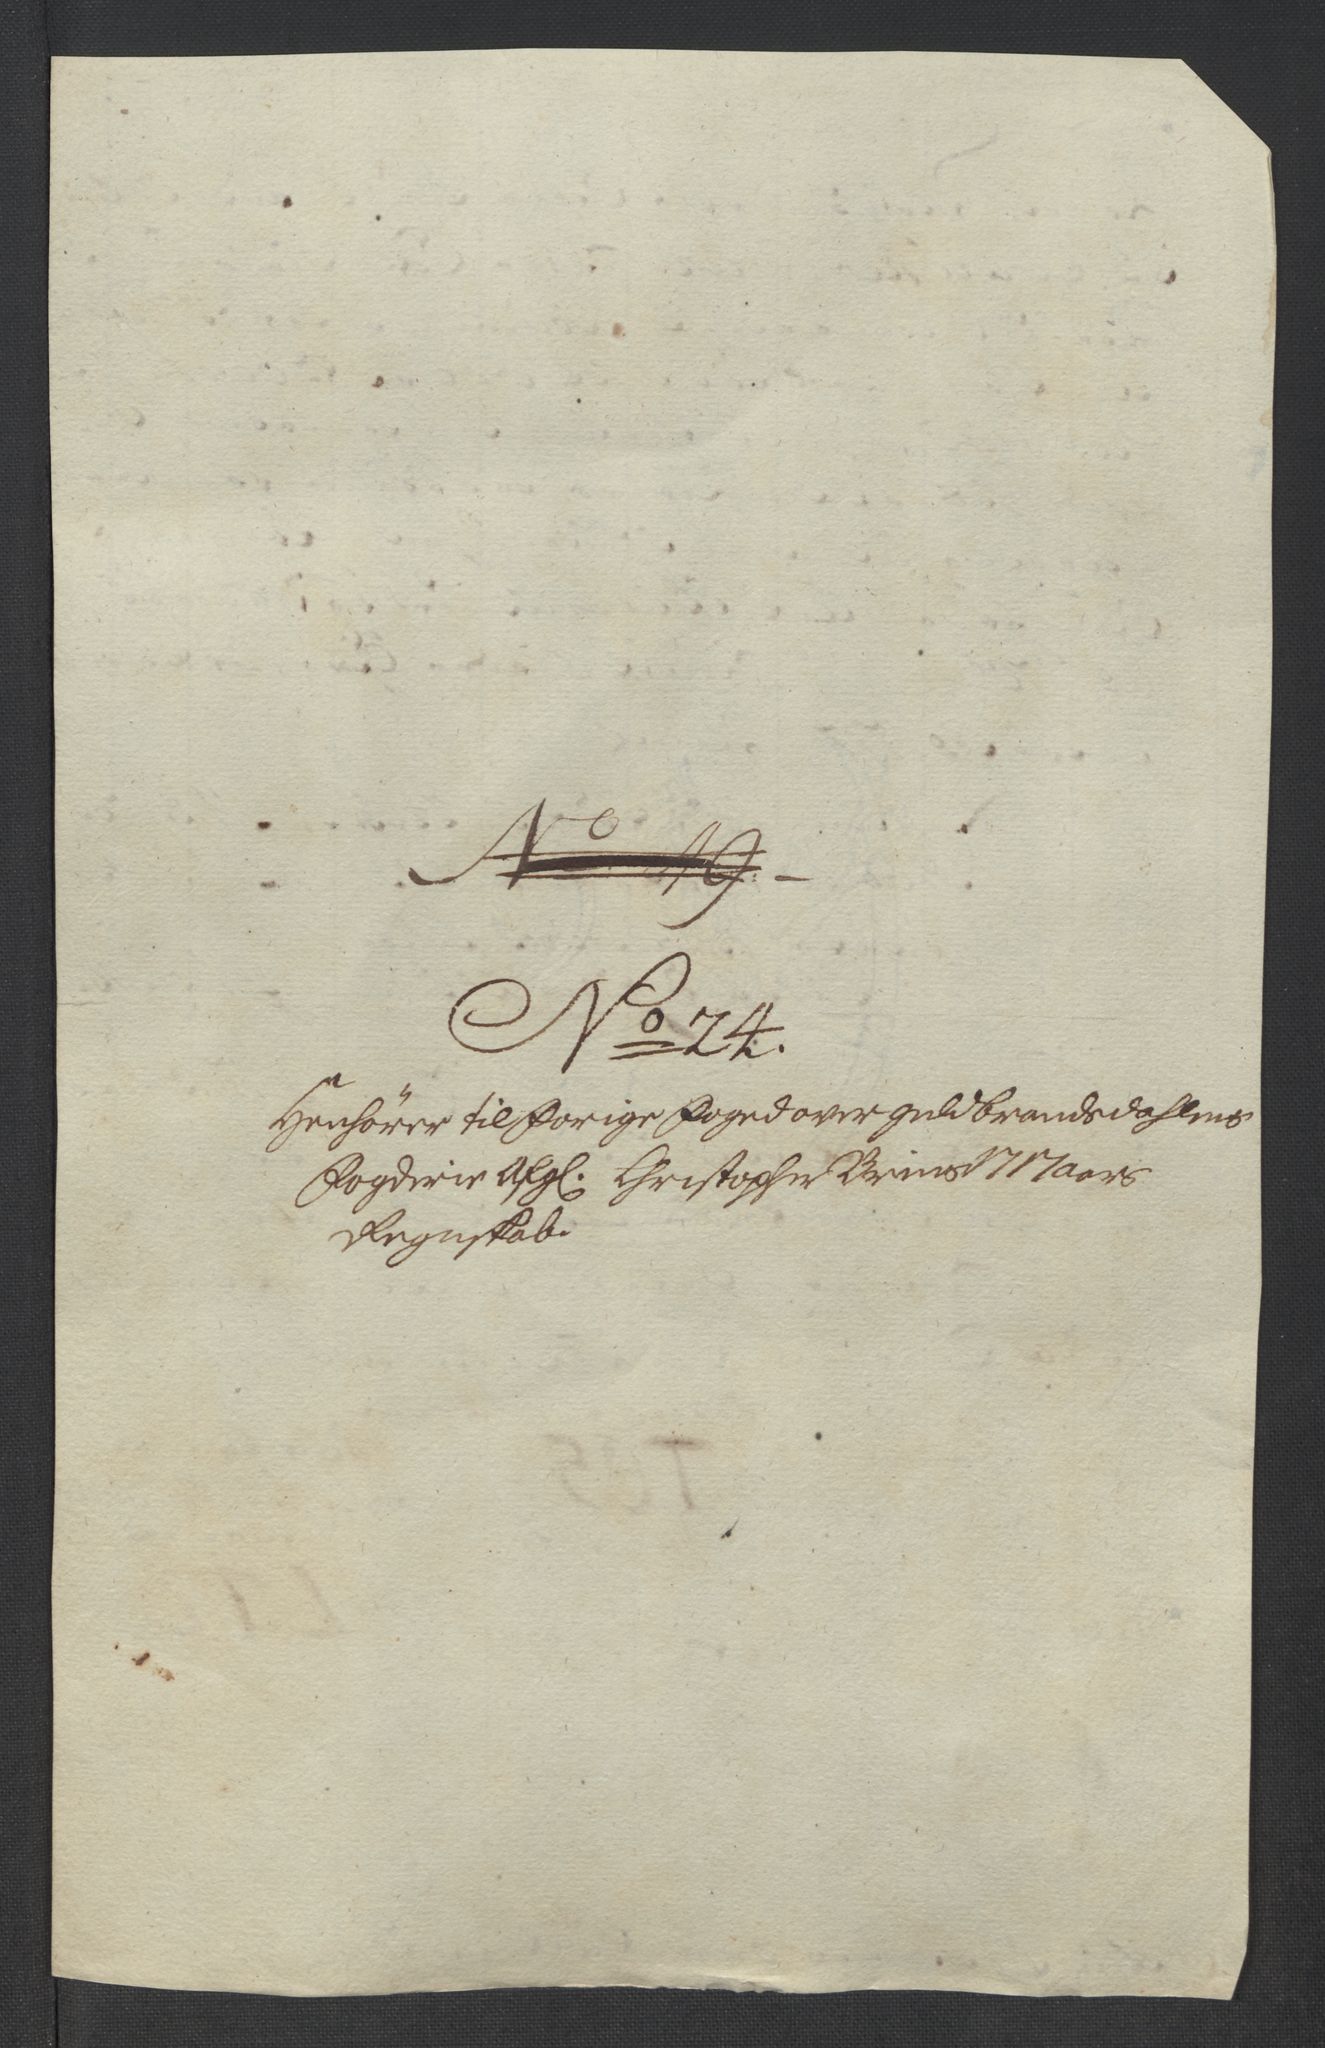 No 19.
No 24.
Henhörer til Forige Foged over Guldbrandsdahlens
Fogderie Afgl. Christopher Brims 1717 aars
Regnskab.